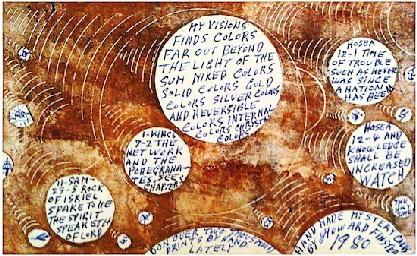 MY VISIONS
FINDS COLORS
FAR OUT BEYOND
THE LIGHT OF THE
SUN MIXED COLORS
SOLID COLORS GOLD
COLORS SILVER COLORS
AND REVERSIBLE
COLORS INTERNAL
COLORS
HOSEA
12-1 TIME
OF TROUBLE
SUCH AS NEVER
WAS SINCE
A NATION
HAS BEEN
1-KINGS
7-2 THE
NET WORK
AND THE
CHAPTER
HOSEA
12-4 AND
KNOWLEDGE
SHALL BE
INCREASED
WATCH
11-SAM-
23-3 ROCK
OF ISRIEL
SPAKE TO ME
THE SPIRIT
SPEAKETH
OF LORD
GON OVER TWO THOUSAND
PRINTS BY HAND
LATELY
HAND MADE MISTERY
BY HOWARD FINSTER
1980